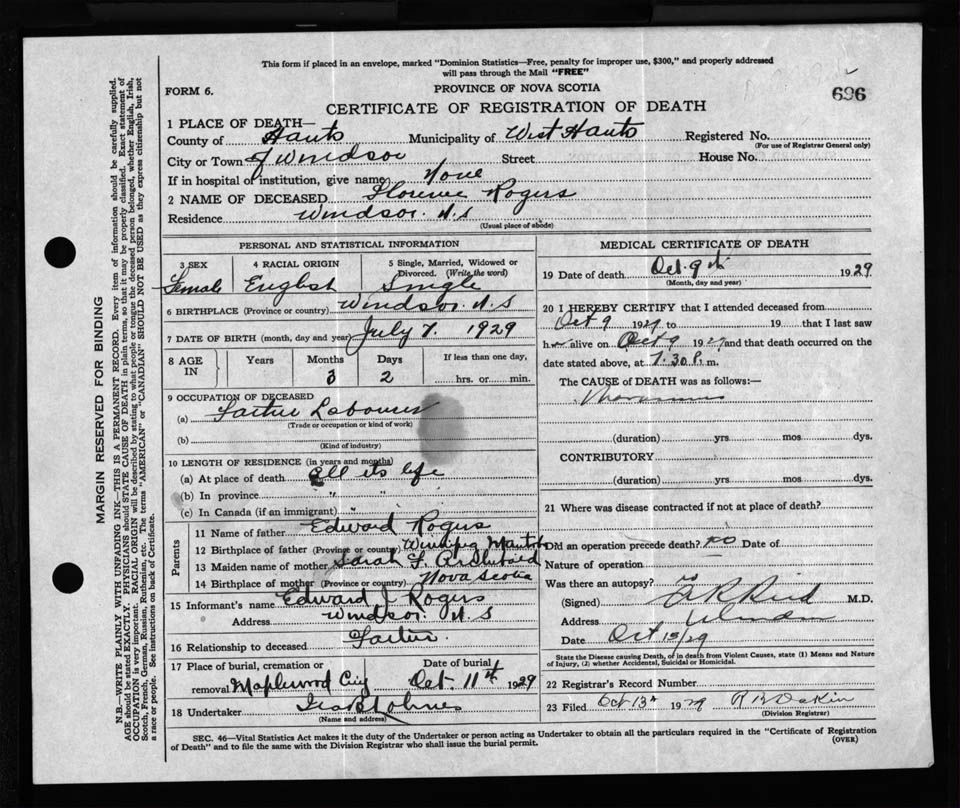 This form if placed in an envelope, marked "Dominion Statistics—Free, penalty for improper use, $300," and properly addressed
will pass through the Mail "FREE"
FORM 6.
PROVINCE OF NOVA SCOTIA
696
CERTIFICATE OF REGISTRATION OF DEATH
1 PLACE OF DEATH—
County of Hants Municipality of West Hants Registered No.
(For use of Registrar General only)
City or Town of Windsor Street House No.
If in hospital of institution, give name None
2 NAME OF DECEASED Florence Rogers
Residence Windsor. N.S
(Usual place of abode)
PERSONAL AND STATISTICAL INFORMATION
3 SEX 4 RACIAL ORIGIN 5 Single, Married, Widowed or
Divorced. (Write the word)
Female English Single
6 BIRTHPLACE (Province or country) Windsor. N.S
7 DATE OF BIRTH (month, day and year) July 7. 1929
8 AGE IN Years Months Days If less than one day,
3 2 hrs. or min.
9 OCCUPATION OF DECEASED
(a) Father Labourer
(Trade or occupation or kind of work)
(b)
(Kind of industry)
10 LENGTH OF RESIDENCE (in years and months)
(a) At place of death all its life
(b) In province " "
(c) In Canada (if an immigrant) " "
Parents
11 Name of father Edward Rogers
12 Birthplace of father (Province or country) Winnipeg Manitoba
13 Maiden name of mother Sarah F. Archibald
14 Birthplace of mother (Province or country) Nova Scotia
15 Informant's name Edward J. Rogers
Address Windsor. N.S
16 Relationship to deceased Father.
17 Place of burial, cremation or Date of burial
removal Maplewood Cty Oct. 11th 1929
18 Undertaker
(Name and address)
MEDICAL CERTIFICATE OF DEATH
19 Date of death Oct. 9th 1929
(Month, day and year)
20 I HEREBY CERTIFY that I attended deceased from
Oct 9 1929 to 19 that I last saw
h alive on Oct 9 1929 and that death occurred on the
date stated above, at 7.30 P. m.
The CAUSE OF DEATH was as follows:—
Marasmus
(duration) yrs mos dys.
CONTRIBUTORY
(duration) yrs mos dys.
21 Where was disease contracted if not at place of death?
Did an operation precede death? no Date of
Nature of operation
Was there an autopsy? no
(Signed) Reid M.D.
Address
Date Oct 15/29
State the Disease causing Death, or in death from Violent Causes, state (1) Means and Nature
of Injury, (2) whether Accidental, Suicidal or Homicidal.
22 Registrar's Record Number
23 Filed Oct 13th 1929
(Division Registrar)
SEC. 46—Vital Statistics Act makes it the duty of the Undertaker or person acting as Undertaker to obtain all the particulars required in the "Certificate of Registration
of Death" and to file the same with the Division Registrar who shall issue the burial permit.
(OVER)
MARGIN RESERVED FOR BINDING
N.B.—WRITE PLAINLY WITH UNFADING INK—THIS IS A PERMANENT RECORD. Every item of information should be carefully supplied.
AGE should be stated EXACTLY. PHYSICIANS should STATE CAUSE OF DEATH in plain terms, so that it may be properly classified. Exact statement of
OCCUPATION is very important. RACIAL ORIGIN will be described by stating to what people or tongue the deceased person belonged, whether English, Irish,
Scotch, French, German, Russian, Ruthenian, etc. The terms "AMERICAN" or "CANADIAN" SHOULD NOT BE USED as they express citizenship but not
a race or people. See instructions on back of Certificate.